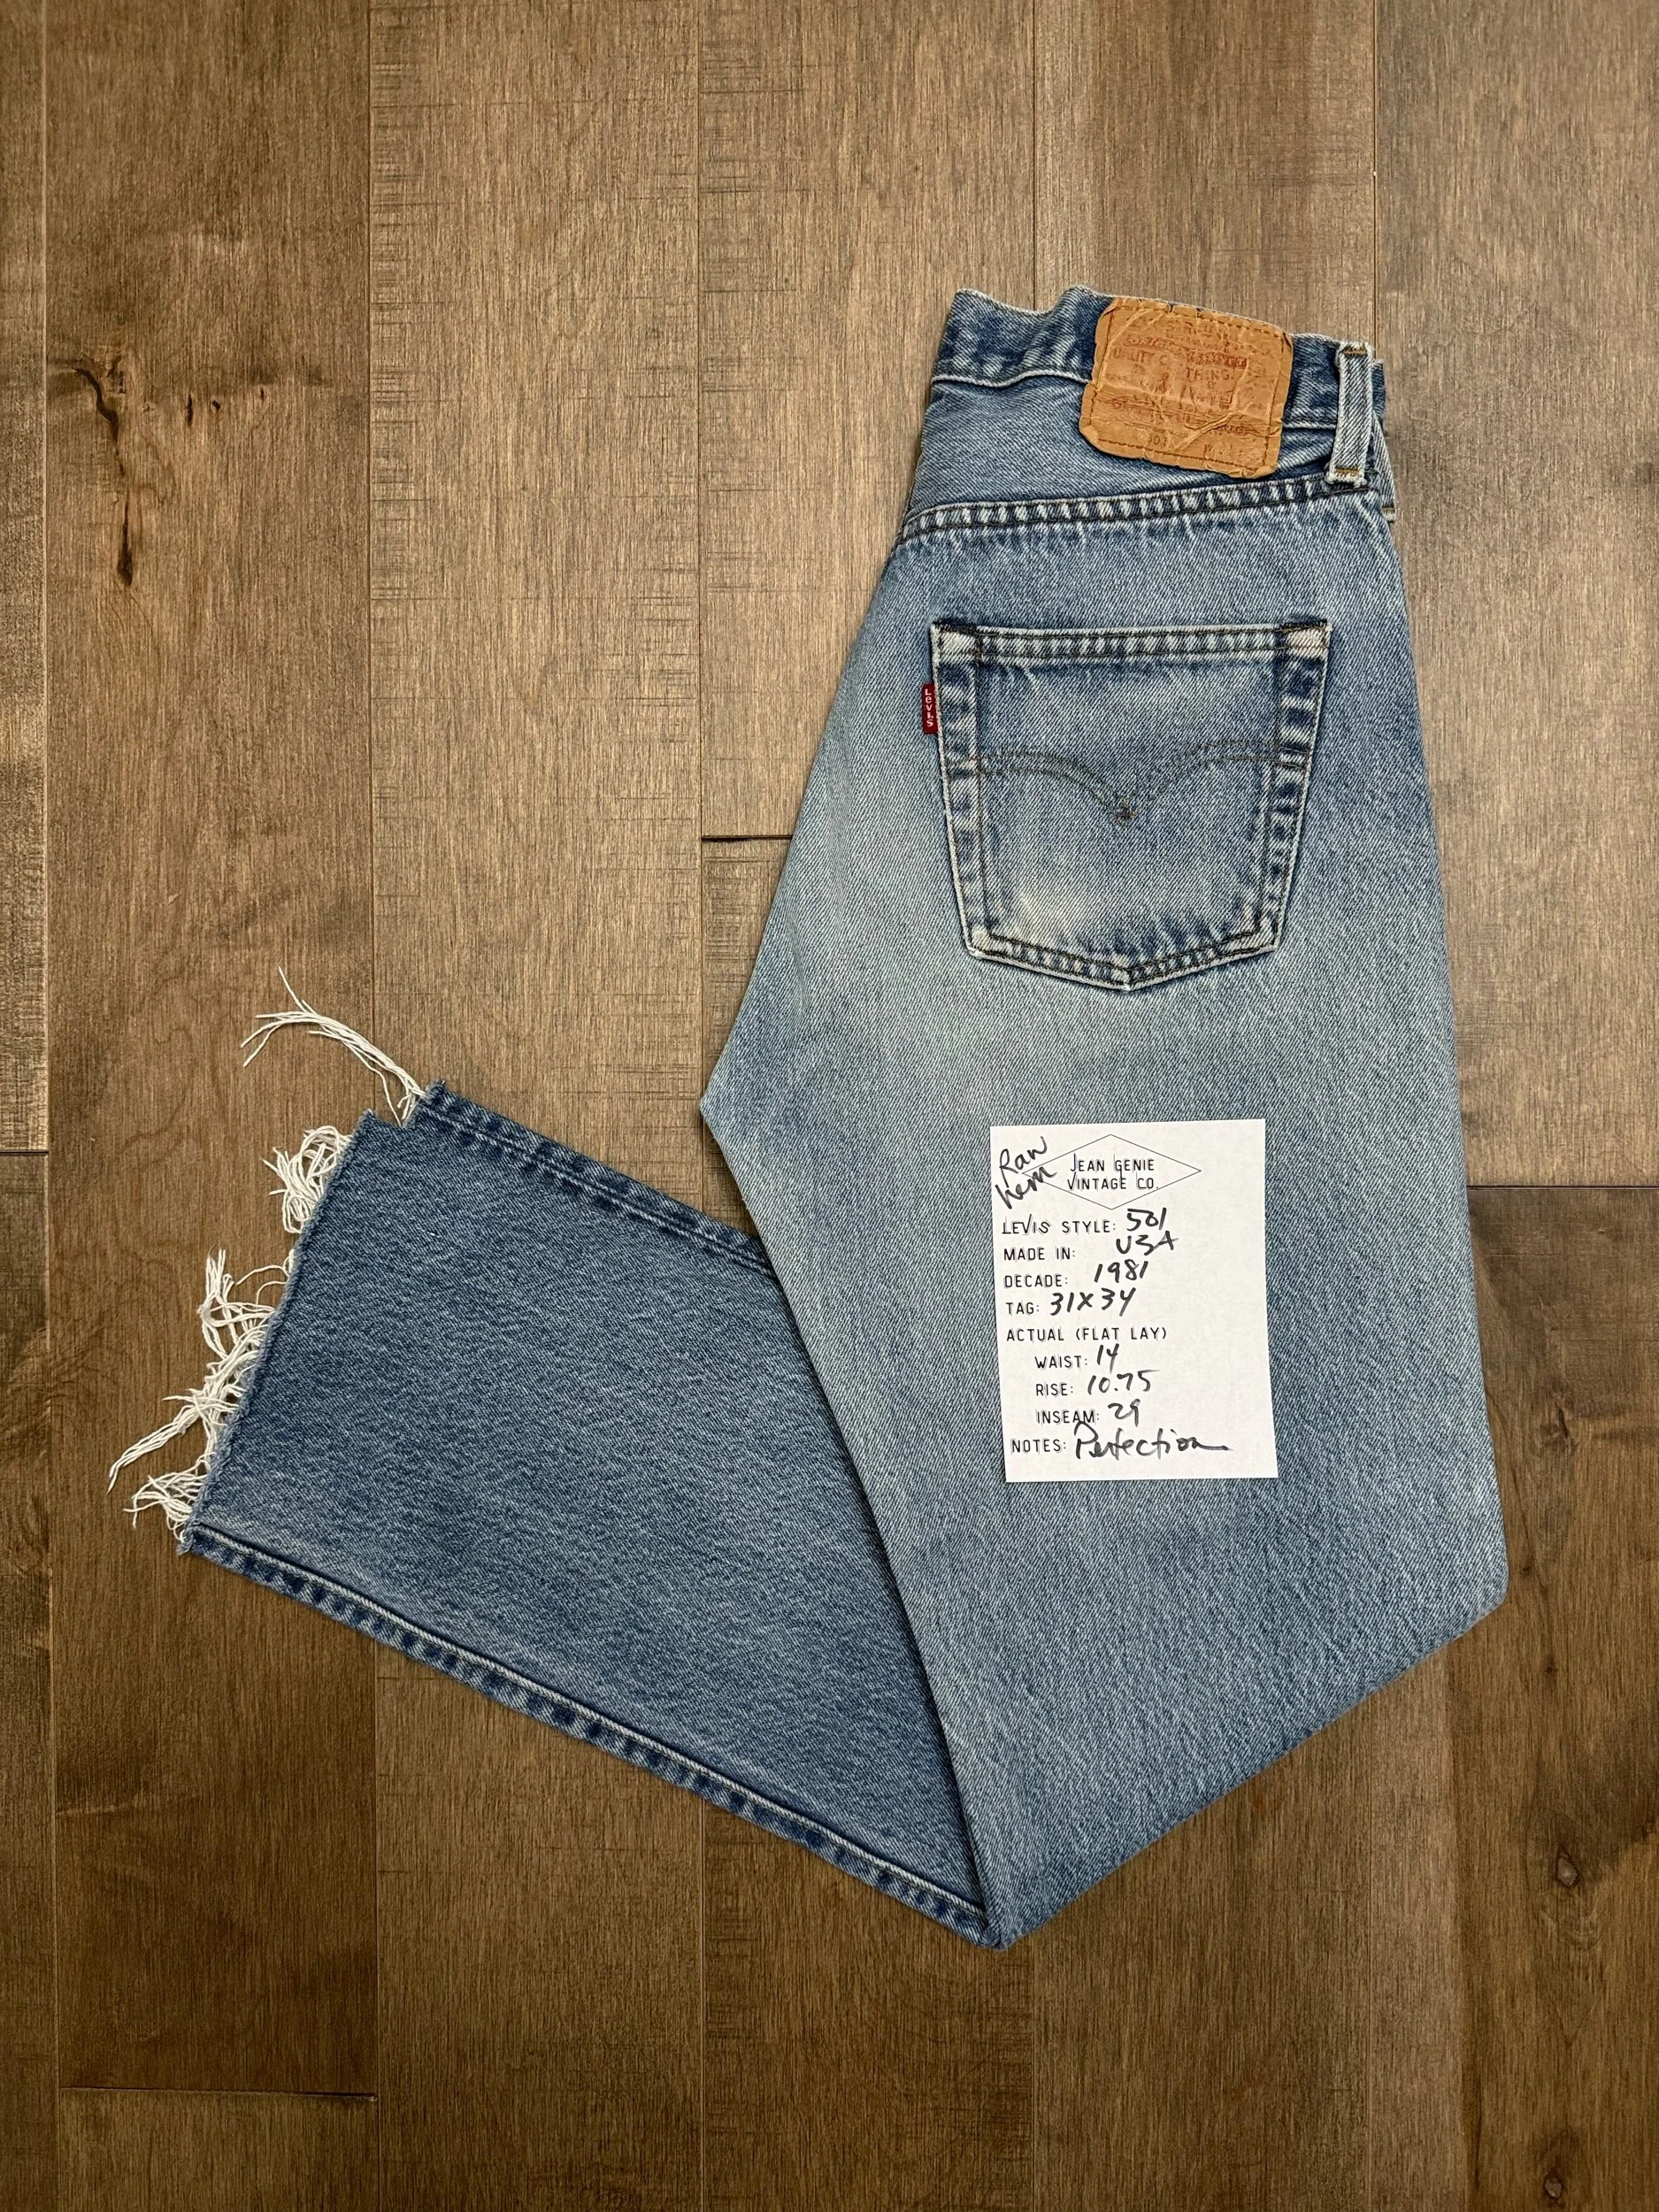 QUALITY CLOTHING
LEVI'S
Raw
hem
JEAN GENIE
VINTAGE CO.
LEVIS STYLE: 501
MADE IN: USA
DECADE: 1981
TAG: 31X34
ACTUAL (FLAT LAY)
WAIST: 14
RISE: 10.75
INSEAM: 29
NOTES: Perfection